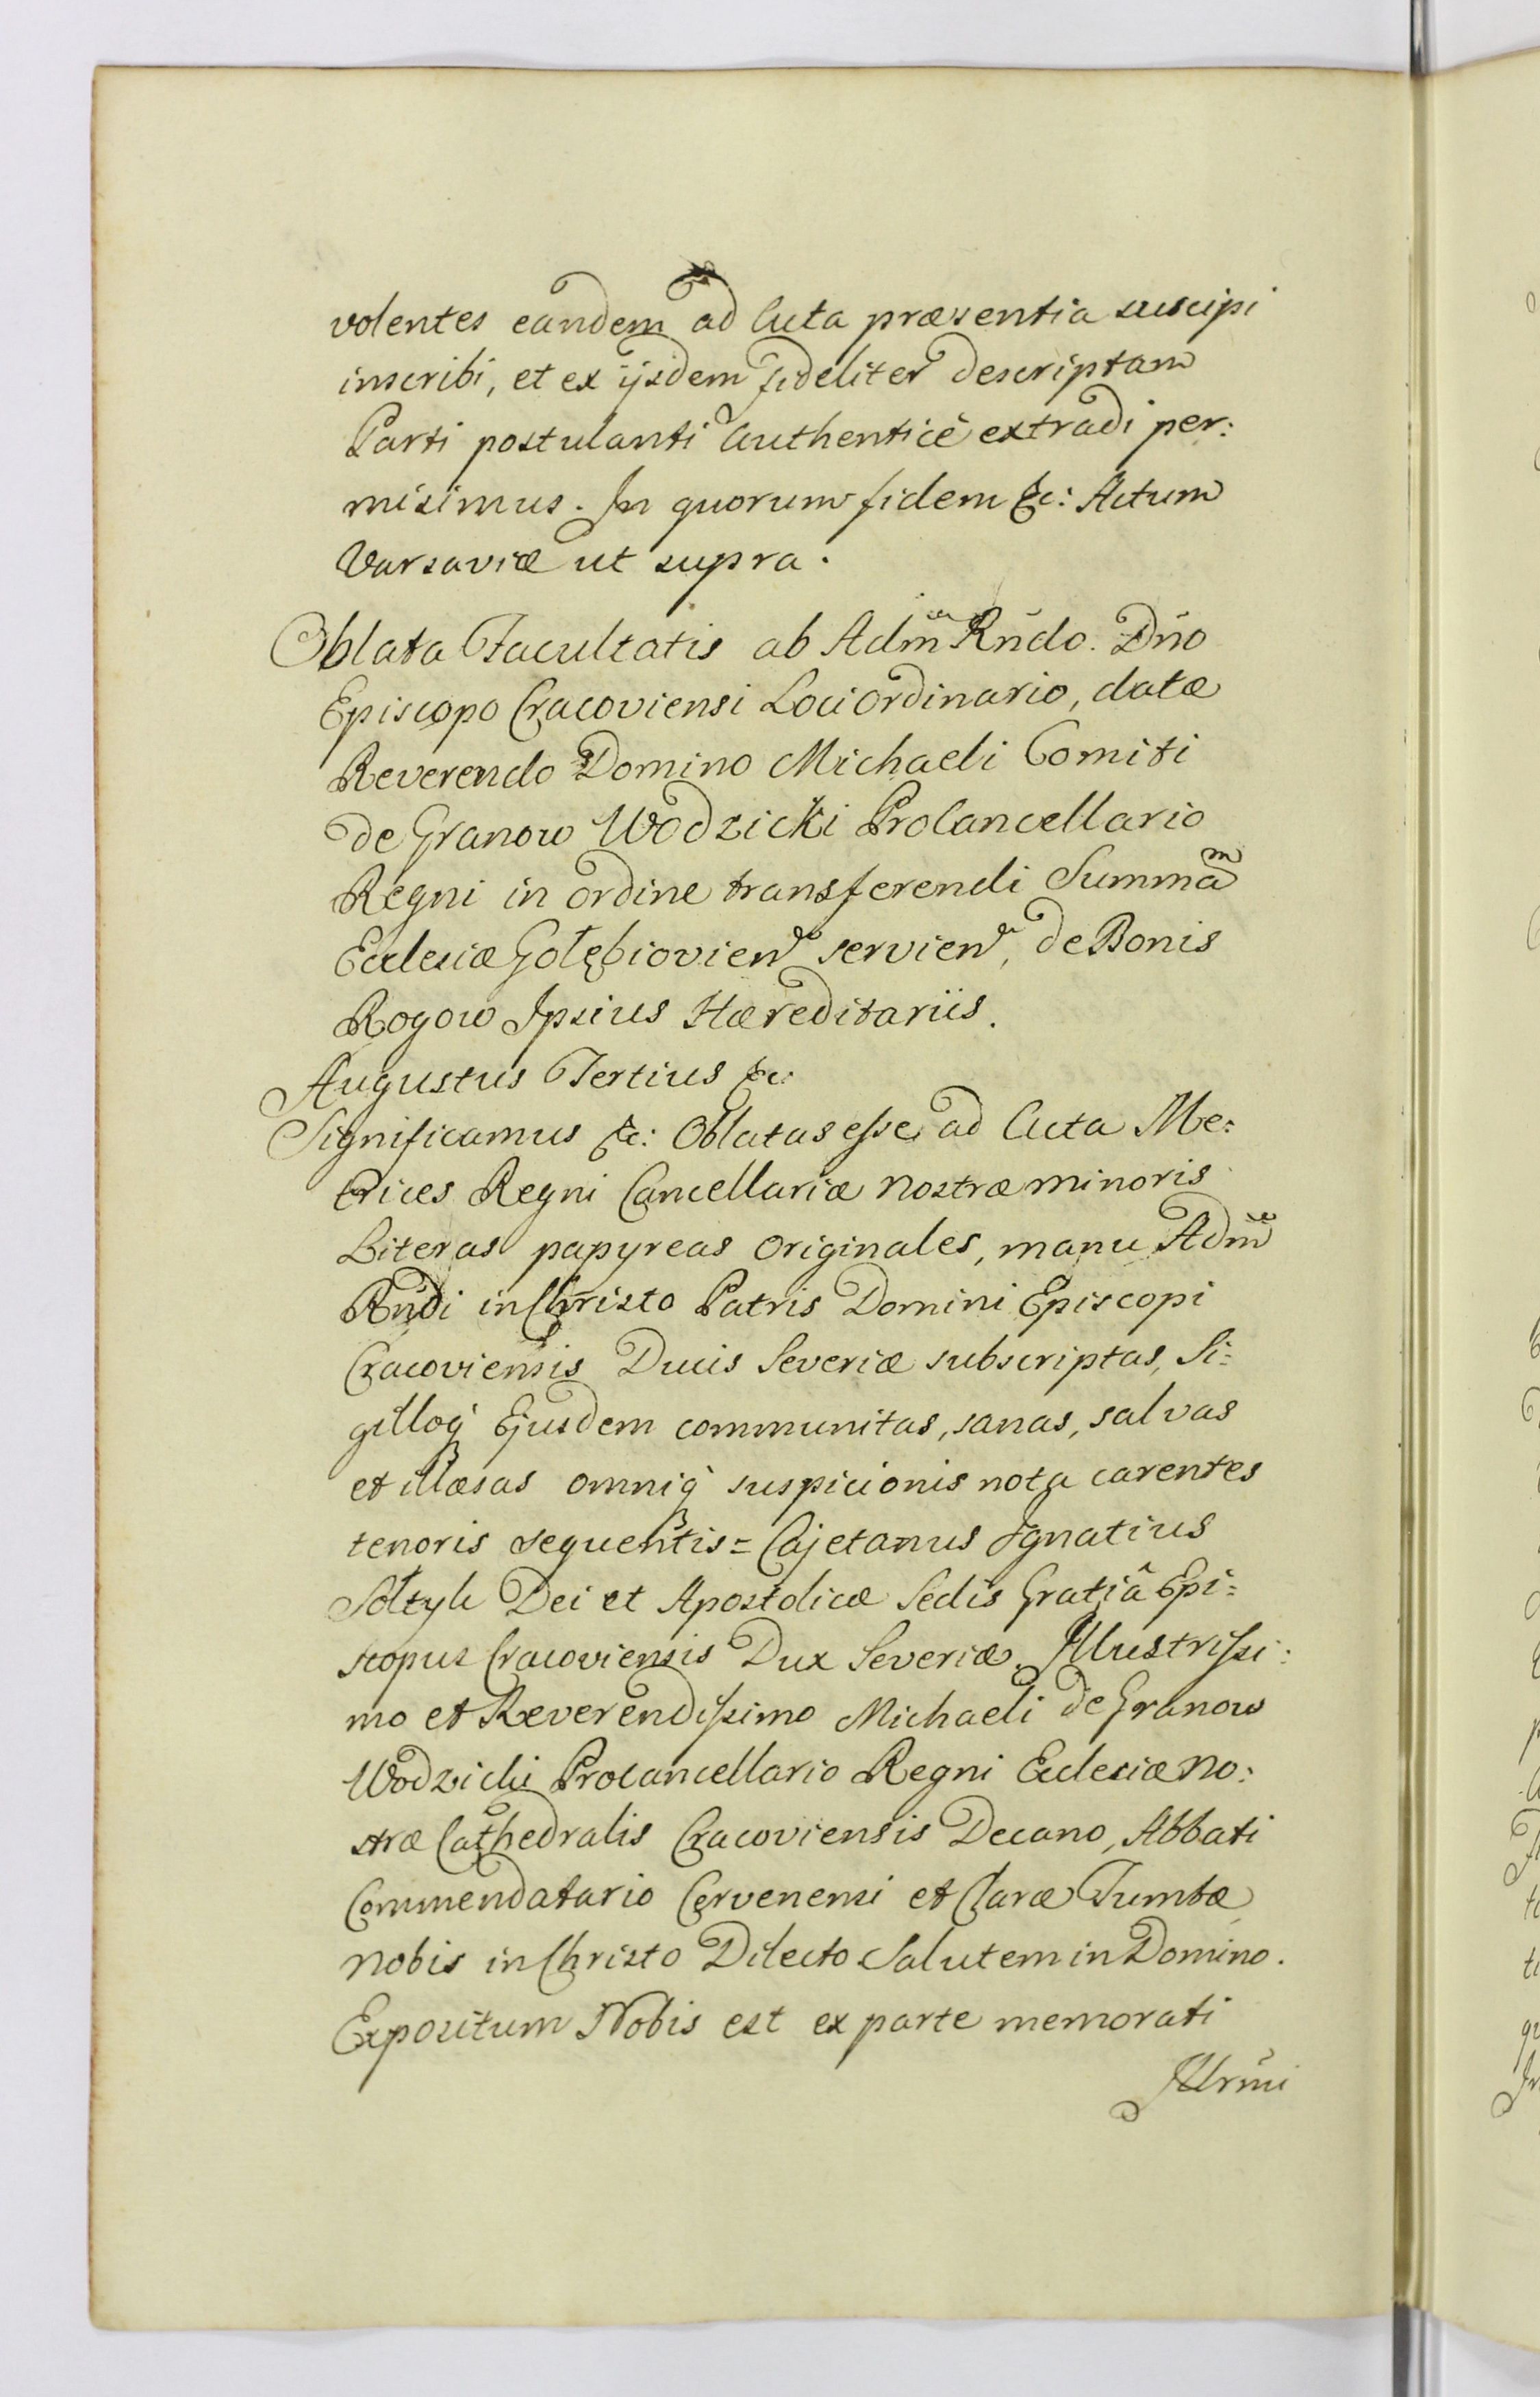 volentes eandem ad Acta præsentia suscipi
inscribi, et ex ijsdem fideliter descriptam
Parti postulanti Authenticè extradi per:
misimus. In quorum fidem &c: Actum
Varsaviæ ut supra.
Oblata Facultatis ab Adm̃ Rñdo. Dño
Episcopo Cracoviensi Loci Ordinario, datæ
Reverendo Domino Michaeli Comiti
de Granow Wodzicki ProCancellario
Regni in ordine transferendi Summam
Ecclesiæ Gołębiovien servien, de Bonis
Rogow Ipsius Hæreditariis.
Augustus Tertius &c:
Significamus &c: Oblatas esse ad Acta Me:
trices Regni Cancellariæ nostræ minoris
Literas papyreas originales, manu Adm̃
Rñdi in Christo Patris Domini Episcopi
Cracoviensis Ducis Severiæ subscriptas, Si=
gilloq́ Ejusdem communitas, sanas, salvas
et illæsas omniq́ suspicionis nota carentes
tenoris sequentis = Cajetanus Ignatius
Sołtyk Dei et Apostolicæ Sedis Gratiâ Epi=
scopus Cracoviensis Dux Severiæ. Illustrissi:
mo et Reverendissimo Michaeli de Granow
Wodzicki Procancellario Regni Ecclesiæ no:
stræ Cathedralis Cracoviensis Decano, Abbati
Commendatario Cervenensi et Claræ Tumbæ
nobis in Christo Dilecto Salutem in Domino.
Expositum Nobis est ex parte memorati
Illrm̃i